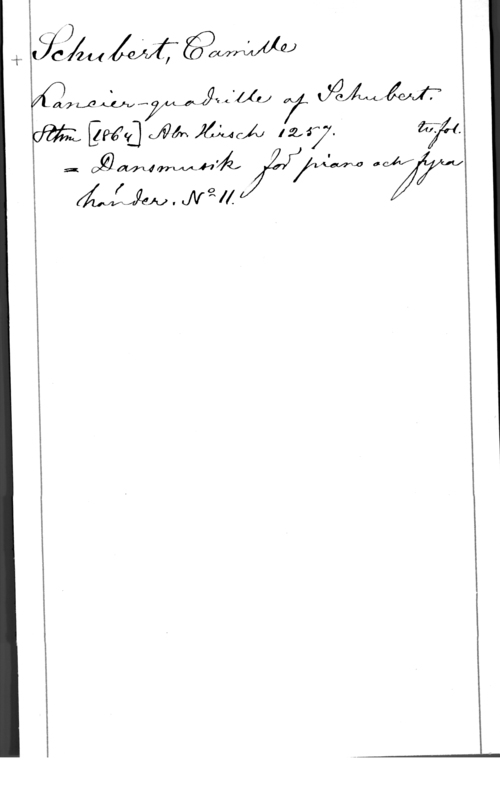 + Schubert, Camille
Lancier-quadrille af Schubert.
Sthm [1864] Abr. Hirsch 1257. tv. fol.
= Dansmusik för piano och fyra
händer. Nº 11.